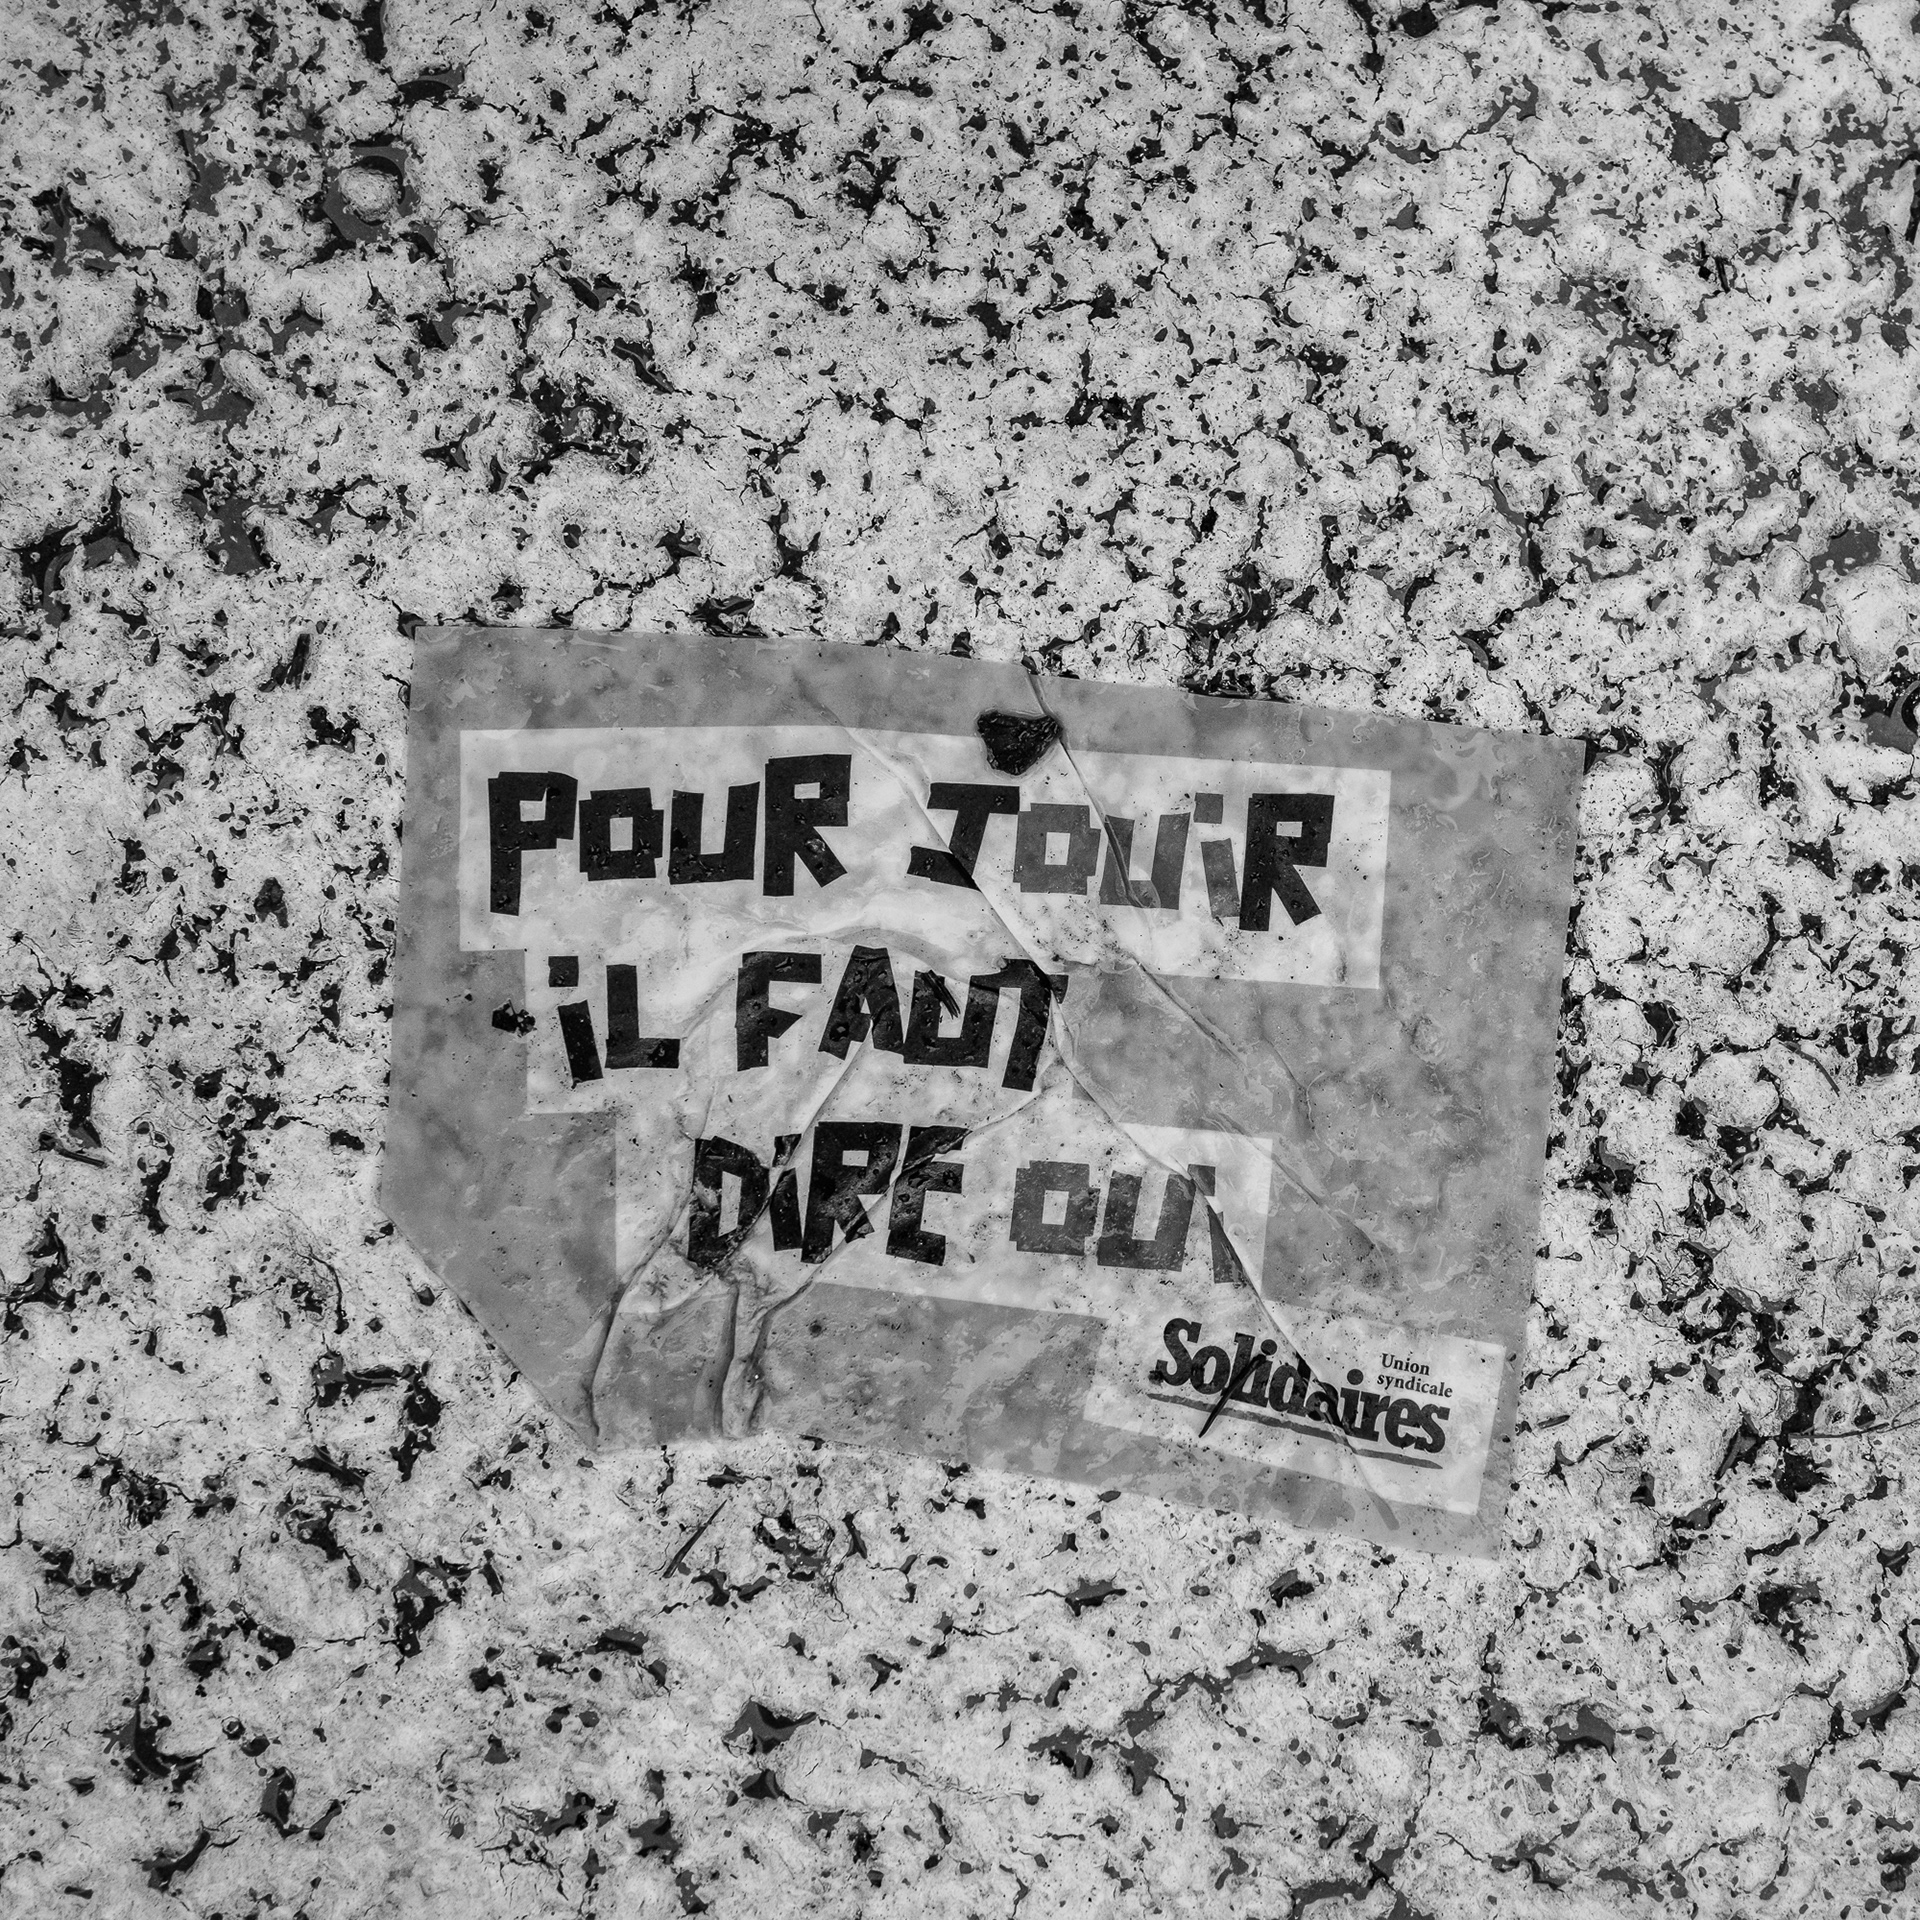 POUR JOUiR
iL FAUT
DiRE OUi
Solidaires
Union
syndicale